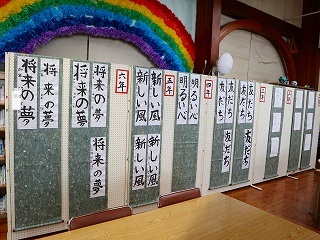 将来の夢
将来の夢
将来の夢
将来の夢
将来の夢
六年
新しい風
新しい風
新しい風
新しい風
五年
明るい心
明るい心
四年
友だち
友だち
友だち
友だち
友だち
友だち